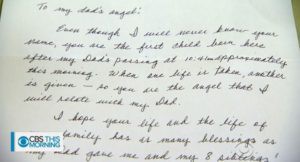 To my dad's angel!
Even though I will never know your
name, you are the first child born here
after my Dad's passing at 10:41am approximately
this morning. When one life is taken, another
is given - so you are the angel that I
will relate with my Dad.
I hope your life and the life of
family has as many blessings as
my dad gave me and my 8 siblings!
CBS THIS
MORNING